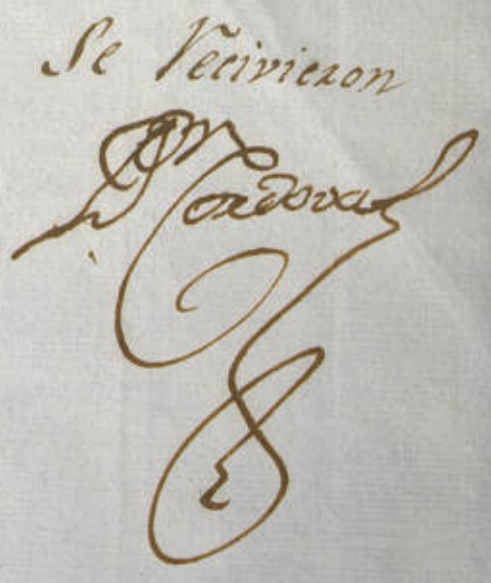 Se recivieron
Cordova